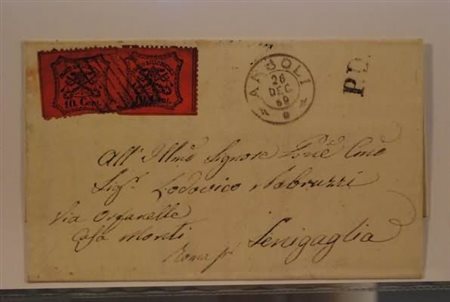 10 Cent.
Cent.
ARSOLI
26
DEC
69
P.D.
All' Illmo Signore
Sigr. Lodovico Mabruzzi
Via Organelle
Casa Monti
Roma pr Senigaglia